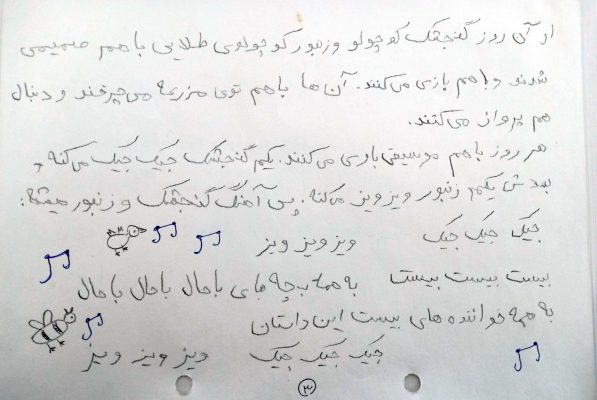 از آن روز گنجشک کوچولو و زنبور کوچولوی طلایی با هم صمیمی
شدند و با هم بازی می‌کنند. آن ها با هم توی مزرعه می‌چرخند و دنبال
هم پرواز می‌کنند.
هر روز با هم موسیقی بازی می‌کنند. یکم گنجشک جیک جیک می‌کنه و
بعدش یکم زنبور ویز ویز می‌کنه. پس آهنگ گنجشک و زنبور میشه:
جیک جیک جیک ویز ویز ویز
بیست بیست بیست به همه بچه های باحال باحال باحال
به همه خواننده های بیست این داستان
جیک جیک جیک ویز ویز ویز
۳